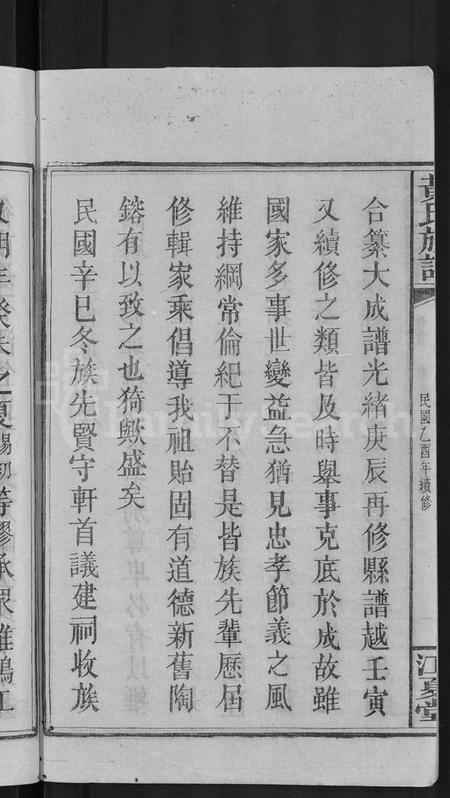 黄氏族譜
民國乙酉年續修
江夏堂
合纂大成譜光緒庚辰再修縣譜越壬寅
又續修之類皆及時舉事克底於成故雖
國家多事世變益急猶見忠孝節義之風
維持綱常倫紀于不替是皆族先輩歷屆
修輯家乘倡導我祖貽固有道德新舊陶
鎔有以致之也猗歟盛矣
民國辛巳冬族先賢守軒首議建祠收族
FamilySearch